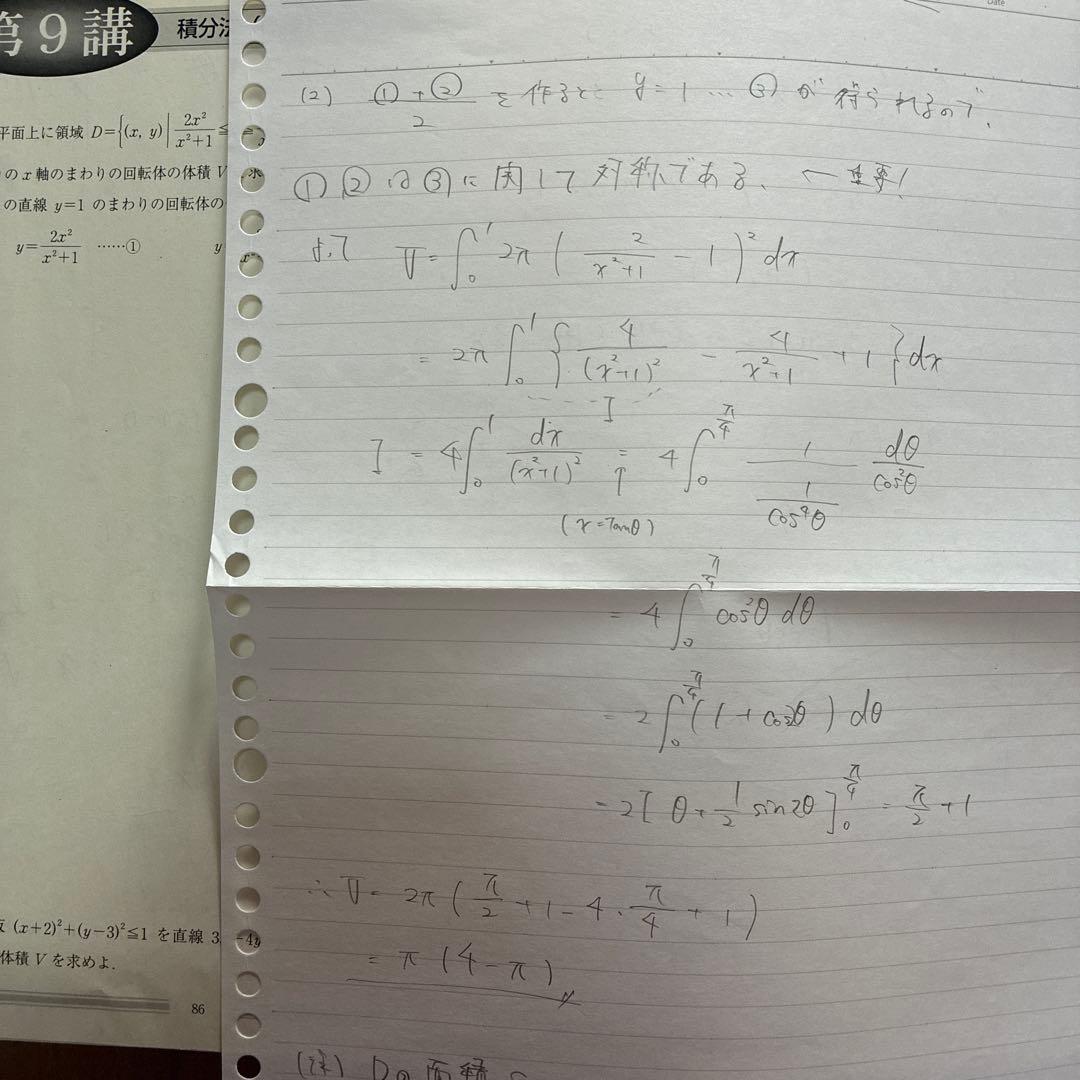 第9講
積分法
平面上に領域 D={(x, y)| 2x²/(x²+1) ≦
の x 軸のまわりの回転体の体積 V
の直線 y=1 のまわりの回転体の
y=2x²/(x²+1) ……① y
(x+2)²+(y-3)²≦1 を直線 3 -4y
体積 V を求めよ.
86
Date
(2) (①+②)/2 を作ると y=1 … ③ が得られるので、
① ② は ③ に関して対称である、 ← 重要!
よって V = ∫₀¹ 2π ( 2/(x²+1) - 1 )² dx
= 2π ∫₀¹ { 4/(x²+1)² - 4/(x²+1) + 1 } dx
I
I = 4∫₀¹ dx/(x²+1)² = 4∫₀^(π/4) 1/(1/cos⁴θ) dθ/cos²θ
↑
(x=tanθ)
= 4∫₀^(π/4) cos²θ dθ
= 2∫₀^(π/4) (1 + cos2θ) dθ
= 2[ θ + 1/2 sin2θ ]₀^(π/4) = π/2 + 1
∴ V = 2π ( π/2 + 1 - 4・π/4 + 1 )
= π (4 - π)
(注) Dの面積